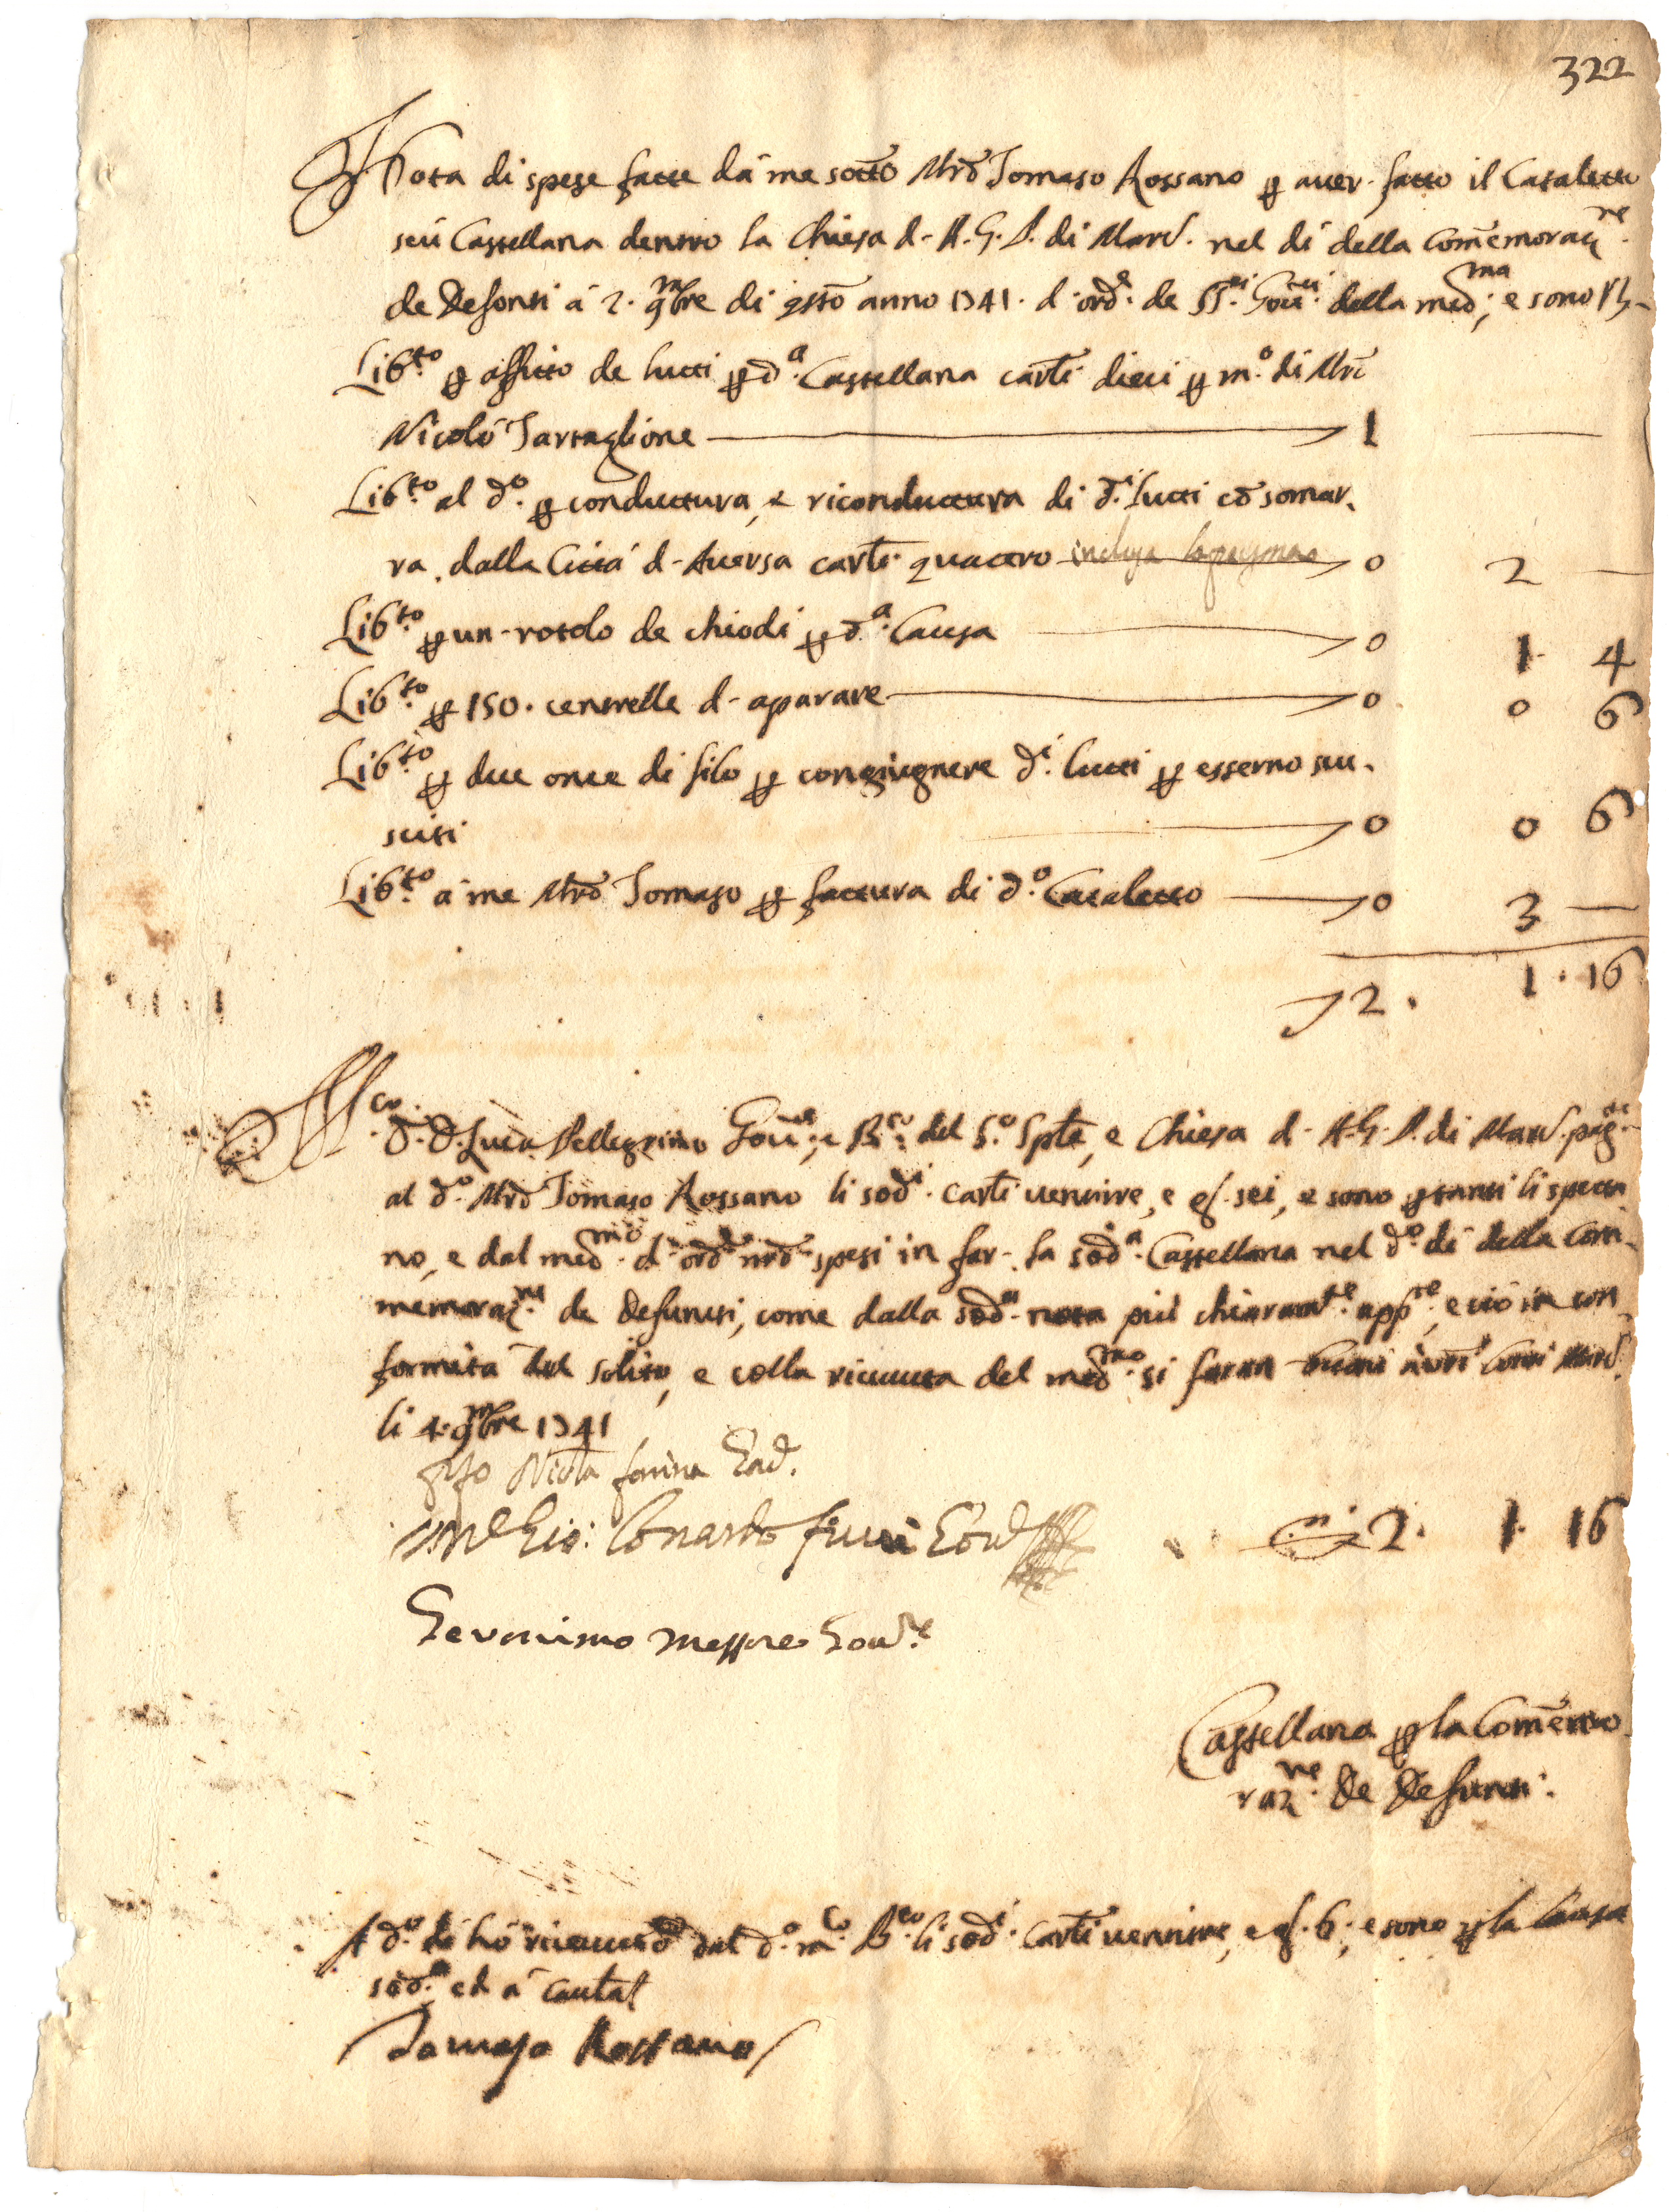 322
Nota di spese fatte dà me sotto Mro Tomaso Rossano p aver fatto il Cataletto
seù Castellana dentro la Chiesa d- A. G. P. di Marc. nel dì della Comemoraz.ne
de Defonti à 2. 9mbre di qsto anno 1741. d'ord.e de SS.ri Gou.ri della med.ma; e sono
Lib.to p affitto de lutti p d.a Castellana carti dieci p m.o di Mro
Nicolò Tartaglione 1 —
Lib.to al d.o p conduttura, e riconduttura di d.i lutti co somar-
ra dalla Città d- Aversa carti quattro 0 2 —
Lib.to p un rotolo de chiodi p d.a Causa 0 1. 4
Lib.to p 150. centrelle d- aparare 0 0 6
Lib.to p due once di filo p congiugnere d.i lutti p esserno scu-
sciti 0 0 6
Lib.to à me Mro Tomaso p fattura di d.o Cataletto 0 3 —
2. 1. 16
M.co D. D. Luca Pellegrino Gou.re, e B.ro del S.o Spto, e Chiesa d- A. G. P. di Marc. pag.te
al d.o Mro Tomaso Rossano li sod.i carti ventitre, e g. sei, e sono p tanti li spetta
no, e dal med.mo d' ord.e nro spesi in far la sod.a Castellana nel d.o dì della Com-
memoraz.ne de Defunti, come dalla sod.a nota più chiaram.te app.re, e ciò in con
formità del solito, e colla ricevuta del med.mo si faran buoni a vri Conti Marc.
li 4. 9mbre 1741
Nicola farina
Gio: Lonardo 2. 1. 16
Geronimo Messore Gou.re
Castellana p la Comemo
raz.ne de Defunti.
A d.o dì hò ricevuto dal d.o m.co B.ro li sod.i carti ventitre, e g. 6., e sono p la Causa
sod.a ed à cautal
Tomaso Rossano